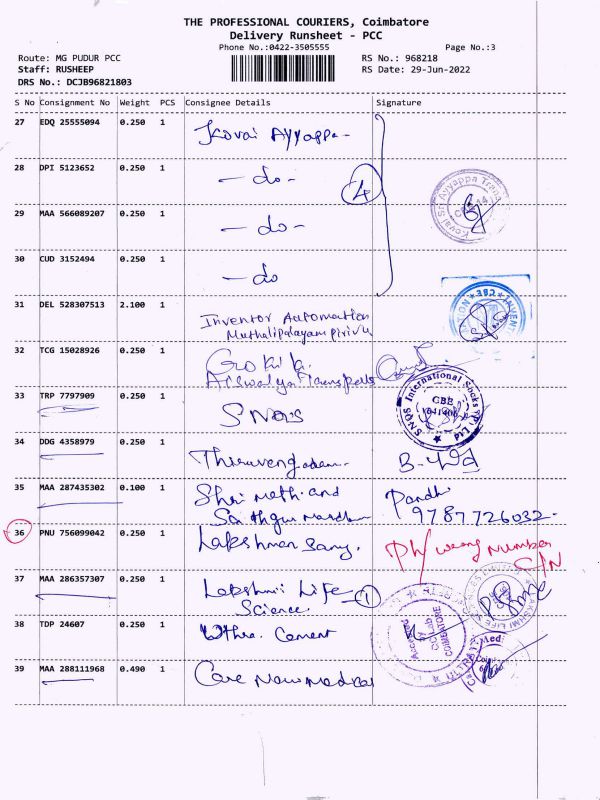 THE PROFESSIONAL COURIERS, Coimbatore
Delivery Runsheet - PCC
Phone No.:0422-3505555
Page No.:3
Route: MG PUDUR PCC
RS No.: 968218
Staff: RUSHEEP
RS Date: 29-Jun-2022
DRS No.: DCJB96821803
S No Consignment No Weight PCS Consignee Details Signature
27 EDQ 25555094 0.250 1 Kovai Ayyappa-
28 DPI 5123652 0.250 1 - do - 4
29 MAA 566089207 0.250 1 - do -
30 CUD 3152494 0.250 1 - do
31 DEL 528307513 2.100 1 Inventor Automation
Muthalipalayam pirivu
32 TCG 15028926 0.250 1 Gokila
33 TRP 7797909 0.250 1 SNQS
SNQS International Socks (P) Ltd
CBE
34 DDG 4358979 0.250 1 Thiruvengadam.
35 MAA 287435302 0.100 1 Shri Math and Pandi
9787726032-
36 PNU 756099042 0.250 1 Lakshman Samy, Ph/ wrong number
C/N
37 MAA 286357307 0.250 1 Lakshmi Life 1
Science.
38 TDP 24607 0.250 1 Uthra. Cement
COIMBATORE
39 MAA 288111968 0.490 1 Care Now Medical